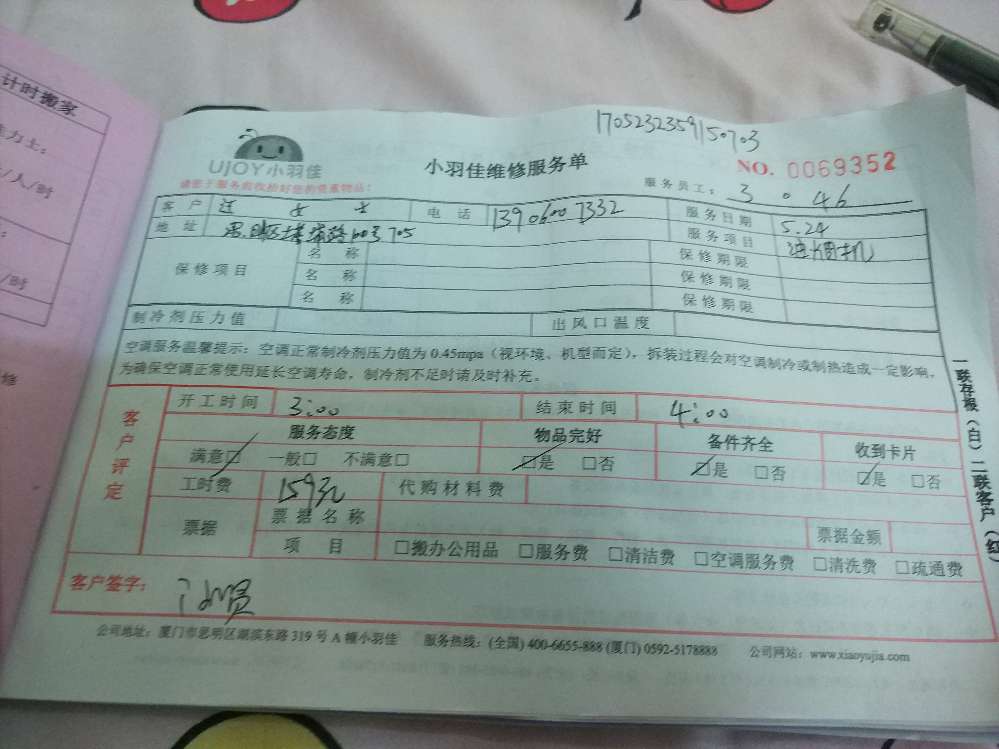 计时搬家
/人/时
/时
修
1705232359150703
UJOY小羽佳
小羽佳维修服务单
NO. 0069352
请您于服务前收拾好您的贵重物品!
服务员工: 3 0 46
客户 女士 电话 13906007332 服务日期 5.24
地址 705 服务项目 油烟机
保修项目 名称 保修期限
名称 保修期限
名称 保修期限
制冷剂压力值 出风口温度
空调服务温馨提示:空调正常制冷剂压力值为0.45mpa(视环境、机型而定),拆装过程会对空调制冷或制热造成一定影响,
为确保空调正常使用延长空调寿命,制冷剂不足时请及时补充。
客户评定
开工时间 3:00 结束时间 4:00
服务态度 物品完好 备件齐全 收到卡片
满意□ 一般□ 不满意□ □是 □否 □是 □否 □是 □否
工时费 159元 代购材料费
票据 票据名称 票据金额
项目 □搬办公用品 □服务费 □清洁费 □空调服务费 □清洗费 □疏通费
客户签字:
公司地址:厦门市思明区湖滨东路319号A幢小羽佳 服务热线:(全国) 400-6655-888 (厦门) 0592-5178888 公司网站:www.xiaoyujia.com
一联存根(白)二联客户(红)